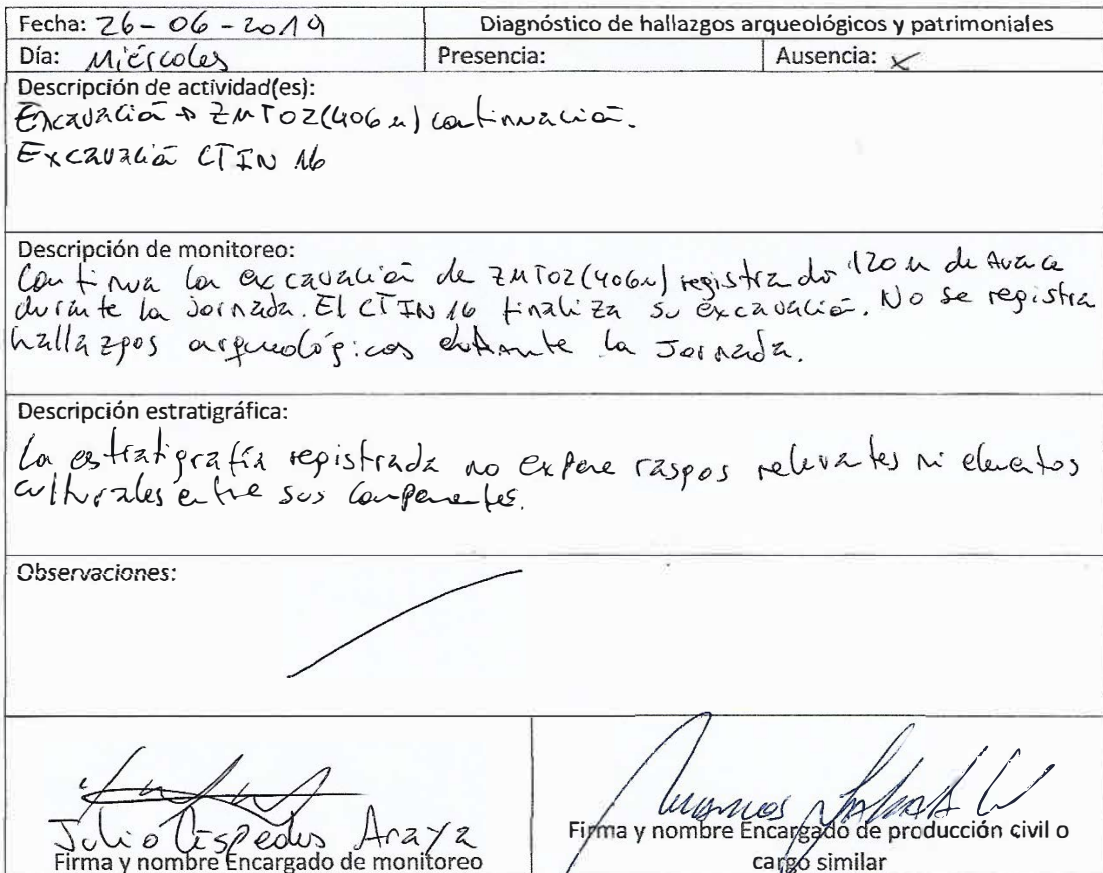 Fecha: 26-06-2019 Diagnóstico de hallazgos arqueológicos y patrimoniales
Día: Miércoles Presencia: Ausencia: x
Descripción de actividad(es):
Excavación → ZMT02(406m) continuación.
Excavación CTIN 16
Descripción de monitoreo:
Continua la excavación de ZMT02(406m) registrando 120 m de Avance
durante la Jornada. El CTIN 16 finaliza su excavación. No se registra
hallazgos arqueológicos durante la Jornada.
Descripción estratigráfica:
La estratigrafía registrada no expone rasgos relevantes ni elementos
culturales entre sus componentes.
Observaciones:
Julio Céspedes Araya
Firma y nombre Encargado de monitoreo
Firma y nombre Encargado de producción civil o
cargo similar